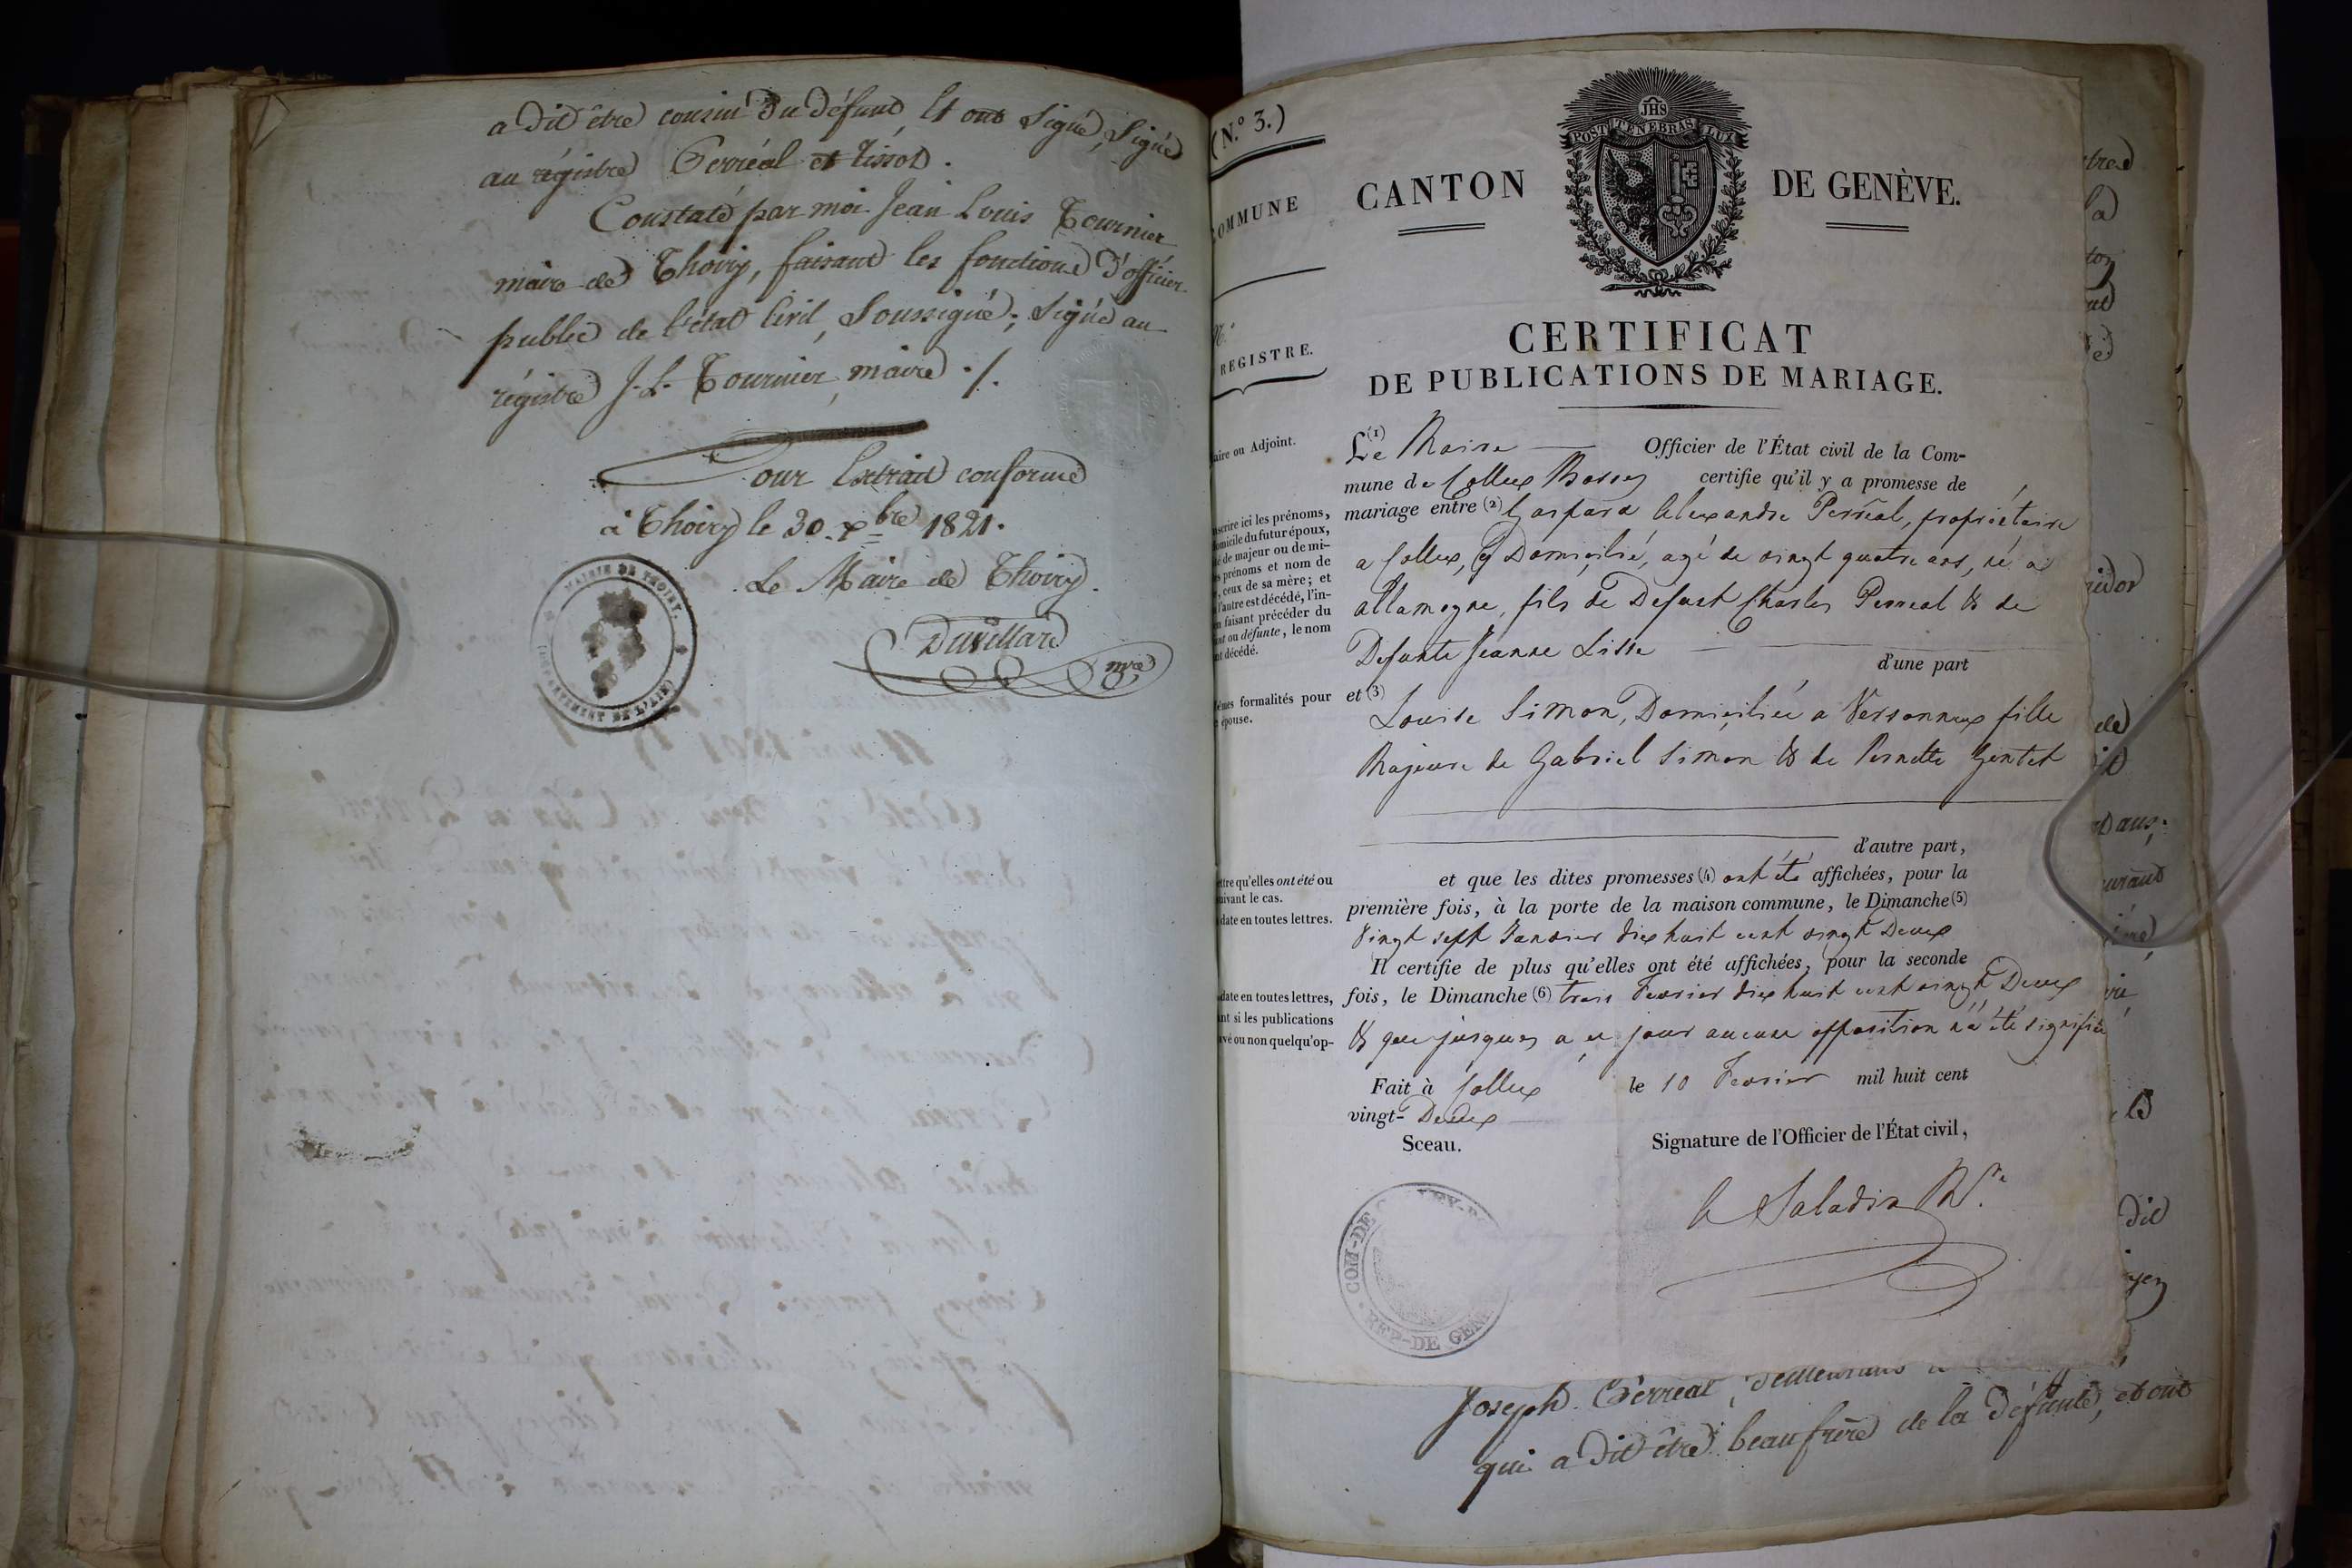 a dit être cousin du défunt Et ont Signé, Signé
au régistre Perréal et Tissot.
Constaté par moi Jean Louis Tournier
maire de Thoiry, faisant les fonctions d'officier
public de l'état Civil, Soussigné; Signé au
régistre J. L. Tournier, maire ./.
Pour Extrait conforme
à Thoiry le 30. xbre 1821.
Le Maire de Thoiry.
Duvillard
mre
MAIRIE DE THOIRY.
DEPARTEMENT DE L'AIN
(N.º 3.)
COMMUNE
N.º
REGISTRE.
JHS
POST TENEBRAS LUX
CANTON DE GENÈVE.
CERTIFICAT
DE PUBLICATIONS DE MARIAGE.
aire ou Adjoint.
Le (1) Maire Officier de l'État civil de la Com-
mune de Collex Bossy certifie qu'il y a promesse de
mariage entre (2) Gaspard Alexandre Perréal, propriétaire
a Collex, y Domicilié, agé de vingt quatre ans, né a
allamogne, fils de Defunt Charles Perreal & de
Defunte Jeanne Lisse d'une part
nscrire ici les prénoms,
omicile du futur époux,
de majeur ou de mi-
prénoms et nom de
, ceux de sa mère; et
l'autre est décédé, l'in-
faisant précéder du
ou défunte, le nom
décédé.
êmes formalités pour
épouse.
et (3)
Louise Simon, Domiciliée a Versonnex fille
Majeure de Gabriel Simon & de Pernette Gentet
d'autre part,
et que les dites promesses (4) ont été affichées, pour la
première fois, à la porte de la maison commune, le Dimanche (5)
Vingt sept Janvier dix huit cent vingt Deux
Il certifie de plus qu'elles ont été affichées, pour la seconde
fois, le Dimanche (6) trois Fevrier dix huit cent vingt Deux
& que jusques a ce jour aucune opposition n'a été signifiée
ettre qu'elles ont été ou
suivant le cas.
date en toutes lettres.
date en toutes lettres,
ant si les publications
ou non quelqu'op-
Fait à Collex le 10 Fevrier mil huit cent
vingt- Deux
Sceau. Signature de l'Officier de l'État civil,
Saladin Mre
COM-DE
REP-DE GEN
Joseph Perréal,
qui a dit être beau frère de la défunte, et ont